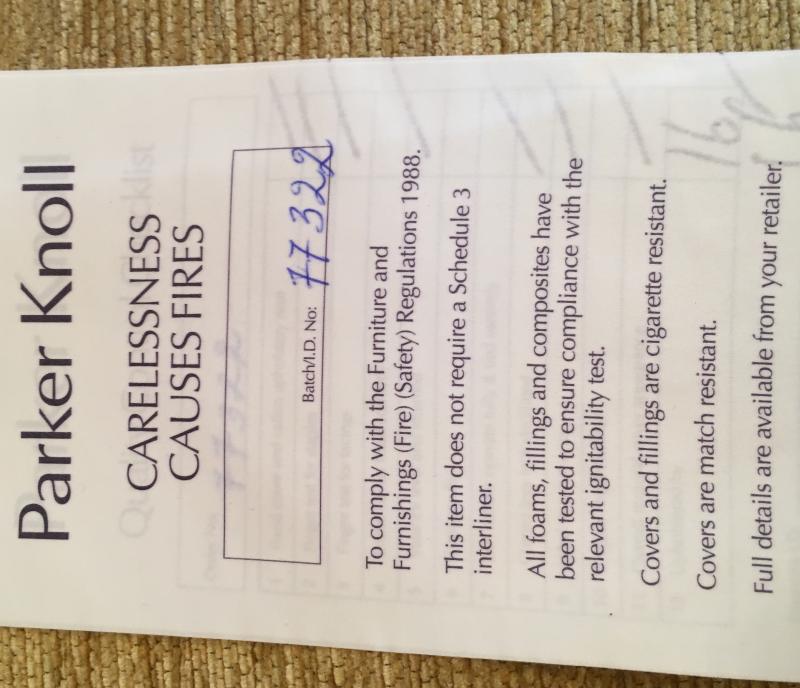 Parker Knoll
CARELESSNESS
CAUSES FIRES
Batch/I.D. No: 77322
To comply with the Furniture and
Furnishings (Fire) (Safety) Regulations 1988.
This item does not require a Schedule 3
interliner.
All foams, fillings and composites have
been tested to ensure compliance with the
relevant ignitability test.
Covers and fillings are cigarette resistant.
Covers are match resistant.
Full details are available from your retailer.